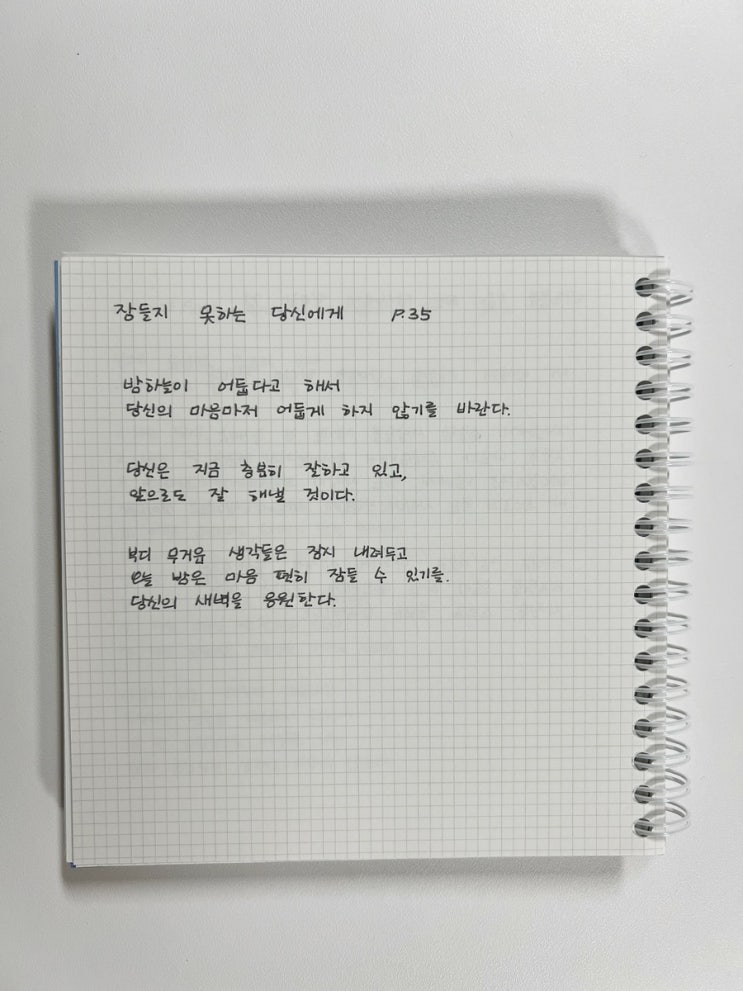 잠들지 못하는 당신에게 P.35
밤하늘이 어둡다고 해서
당신의 마음마저 어둡게 하지 않기를 바란다.
당신은 지금 충분히 잘하고 있고,
앞으로도 잘 해낼 것이다.
부디 무거운 생각들은 잠시 내려두고
오늘 밤은 마음 편히 잠들 수 있기를.
당신의 새벽을 응원한다.